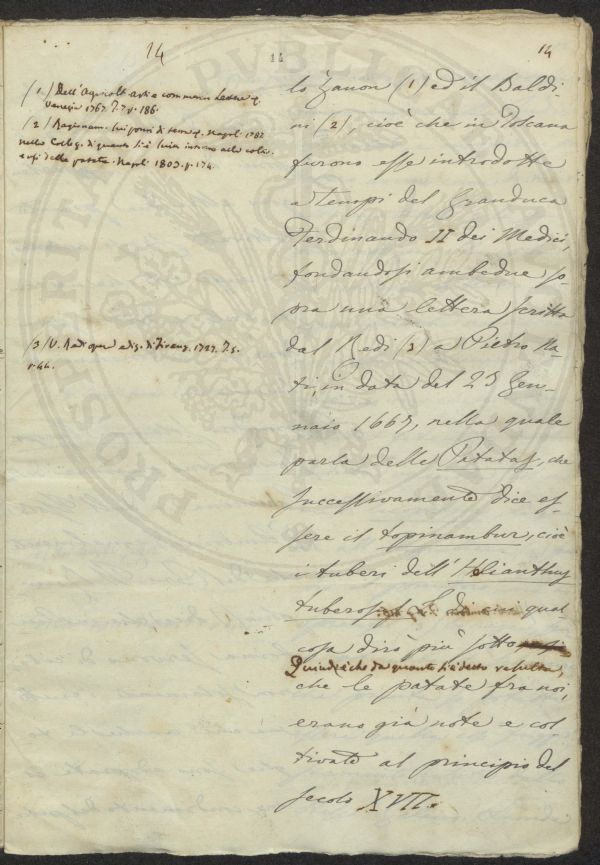 14
14
14
(1) Dell'Agricolt. arti e commercio Lettere &.
Venezia 1767. T.7. p. 186.
(2) Ragionam. sui pomi di terra &. Napol. 1782
nella di quanto si è intorno alla colt.
e usi delle patate. Napol. 1803. p. 174.
(3) V. Redi opere ediz. di Firenz. 1727. T. 5.
p. 44.
lo Zanon (1) ed il Baldi
ni (2), cioè che in Toscana
furono esse introdotte
a tempi del Granduca
Ferdinando II dei Medici,
fondandosi ambedue so
pra una lettera scritta
dal Redi (3) a Pietro Na
ti, in data del 25 Gen
naio 1667, nella quale
parla delle Patatas, che
successivamente dice es
sere il topinambur, cioè
i tuberi dell'Helianthus
tuberosus L. di cui qual
cosa dirò più sotto
Quindi è che da quanto si è detto resulta,
che le patate fra noi,
erano già note e col
tivate al principio del
secolo XVII.
PVBLICA
PROSPERITA